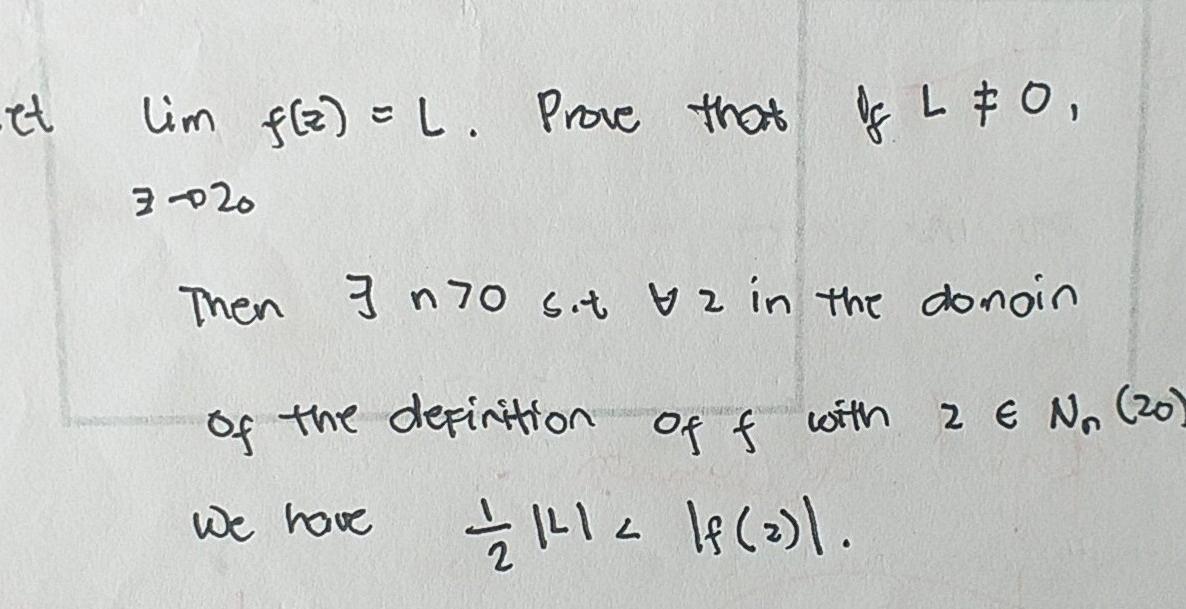 et lim f(z) = L. Prove that if L ≠ 0,
z→z₀
Then ∃ n>0 s.t ∀ z in the domain
of the definition of f with z ∈ Nₙ(z₀)
We have 1/2 |L| < |f(z)|.